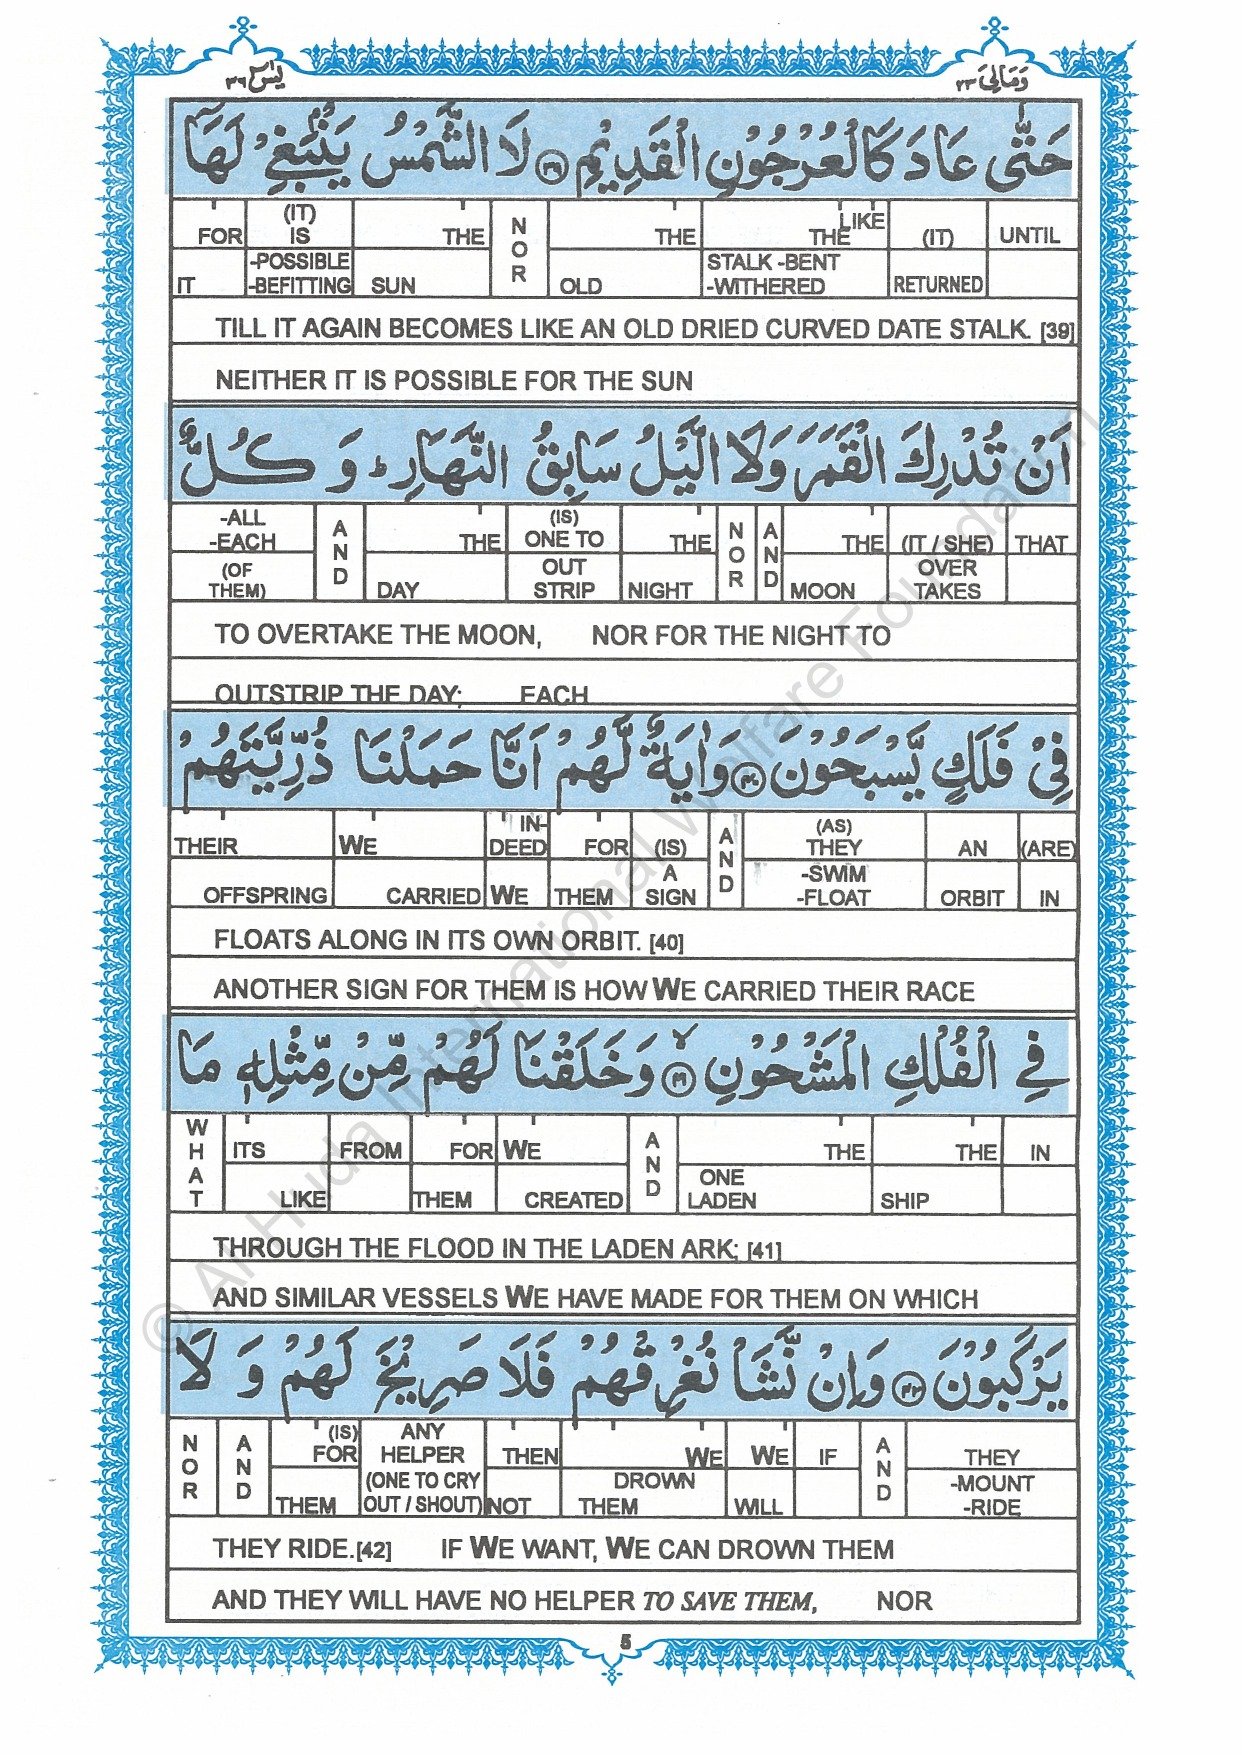 وَمَالِیَ ۲۳
یٰسٓ ۳۶
حَتّٰى عَادَ كَالْعُرْجُوْنِ الْقَدِيْمِ ۳۹ لَا الشَّمْسُ يَنْۢبَغِيْ لَهَاۤ
FOR (IT) IS THE NOR THE LIKE THE (IT) UNTIL
IT -POSSIBLE -BEFITTING SUN OLD STALK -BENT -WITHERED RETURNED
TILL IT AGAIN BECOMES LIKE AN OLD DRIED CURVED DATE STALK. [39]
NEITHER IT IS POSSIBLE FOR THE SUN
اَنْ تُدْرِكَ الْقَمَرَ وَلَا الَّيْلُ سَابِقُ النَّهَارِ ؕ وَ كُلٌّ
-ALL -EACH AND THE (IS) ONE TO THE NOR AND THE (IT / SHE) THAT
(OF THEM) DAY OUT STRIP NIGHT MOON OVER TAKES
TO OVERTAKE THE MOON, NOR FOR THE NIGHT TO
OUTSTRIP THE DAY; EACH
فِيْ فَلَكٍ يَّسْبَحُوْنَ ۴۰ وَاٰيَةٌ لَّهُمْ اَنَّا حَمَلْنَا ذُرِّيَّتَهُمْ
THEIR WE IN-DEED FOR (IS) AND (AS) THEY AN (ARE)
OFFSPRING CARRIED WE THEM A SIGN -SWIM -FLOAT ORBIT IN
FLOATS ALONG IN ITS OWN ORBIT. [40]
ANOTHER SIGN FOR THEM IS HOW WE CARRIED THEIR RACE
فِي الْفُلْكِ الْمَشْحُوْنِ ۴۱ۙ وَخَلَقْنَا لَهُمْ مِّنْ مِّثْلِهٖ مَا
WHAT ITS FROM FOR WE AND THE THE IN
LIKE THEM CREATED ONE LADEN SHIP
THROUGH THE FLOOD IN THE LADEN ARK; [41]
AND SIMILAR VESSELS WE HAVE MADE FOR THEM ON WHICH
يَرْكَبُوْنَ ۴۲ وَاِنْ نَّشَاْ نُغْرِقْهُمْ فَلَا صَرِيْخَ لَهُمْ وَ لَا
NOR AND (IS) FOR ANY HELPER THEN WE WE IF AND THEY
THEM (ONE TO CRY OUT / SHOUT) NOT DROWN THEM WILL -MOUNT -RIDE
THEY RIDE.[42] IF WE WANT, WE CAN DROWN THEM
AND THEY WILL HAVE NO HELPER TO SAVE THEM, NOR
5
© Al Huda International Welfare Foundation